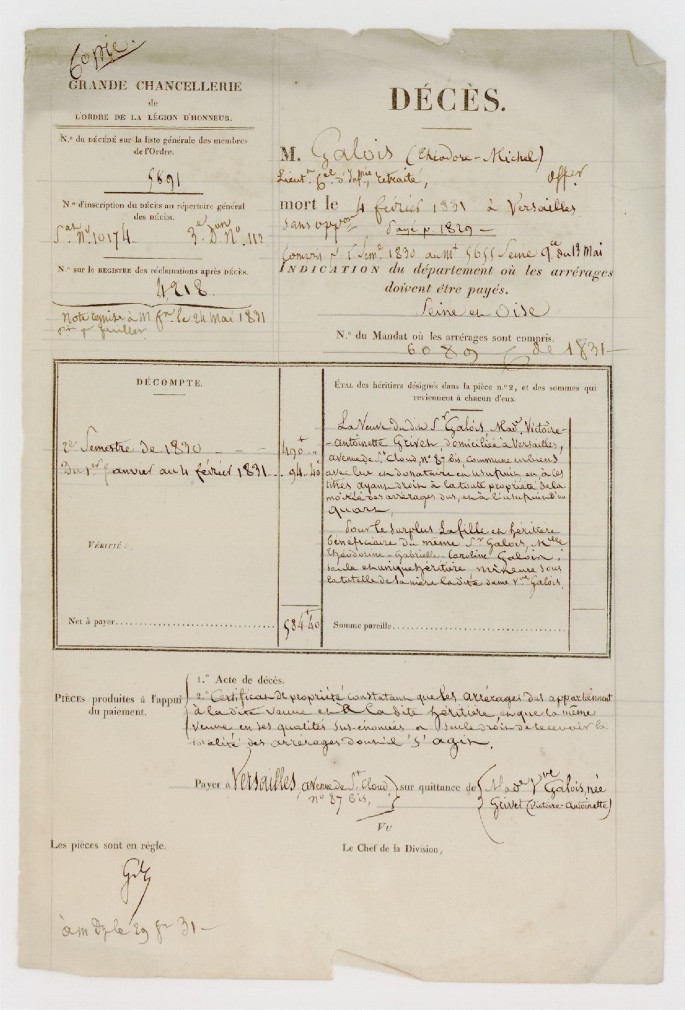 Copie.
GRANDE CHANCELLERIE
de
L'ORDRE DE LA LÉGION D'HONNEUR.
N.º du DÉCÉDÉ sur la liste générale des membres
de l'Ordre.
5891
N.º d'inscription du DÉCÈS au répertoire général
des DÉCÈS.
Nº 10174 3e Nº 112
N.º sur le REGISTRE des réclamations après DÉCÈS.
4218.
Note remise à M. le 24 Mai 1831
DÉCÈS.
M. Galois (Théodore-Michel)
Lieut.t C.el d'Inf.rie retraité, offer
mort le 4 février 1831 à Versailles
sans oppon Payé p 1829 -
Compris 1830 au mt 5655 Seine du 13 Mai
INDICATION du département où les arrérages
doivent être payés.
Seine et Oise
N.º du Mandat où les arrérages sont compris.
de 1831 -
DÉCOMPTE.
2e Semestre de 1830 490 "
Du 1er Janvier au 4 février 1831 94 40
VÉRIFIÉ :
Net à payer 584 40
ÉTAT des héritiers désignés dans la pièce n.º 2, et des sommes qui
reviennent à chacun d'eux.
La Veuve dudit Sr Galois, Made Victoire-
-Antoinette Grivet, domiciliée à Versailles,
avenue de St Cloud, Nº 87 bis, commune en biens
avec lui et donataire en usufruit, et à ces
titres ayant droit à la toute propriété de la
moitié des arrérages dus, et à l'usufruit d'un
quart,
Pour le surplus la fille et héritière
bénéficiaire du même Sr Galois, Melle
Théodorine-Gabrielle-Caroline Galois,
seule et unique héritière, mineure sous
la tutelle de sa mère ladite dame Vve Galois.
Somme pareille
PIÈCES produites à l'appui
du paiement.
1.º Acte de décès.
2.º Certificat de propriété constatant que les arrérages dus appartiennent
à la dite veuve et à la dite héritière, et que la même
veuve en ses qualités sus-énoncées a seule droit de recevoir la
totalité des arrérages dont il s'agit.
Payer à Versailles, avenue de St Cloud, sur quittance de Made Vve Galois, née
nº 87 bis, Grivet (Victoire-Antoinette)
VU
Les pièces sont en règle. Le Chef de la Division,
31 -